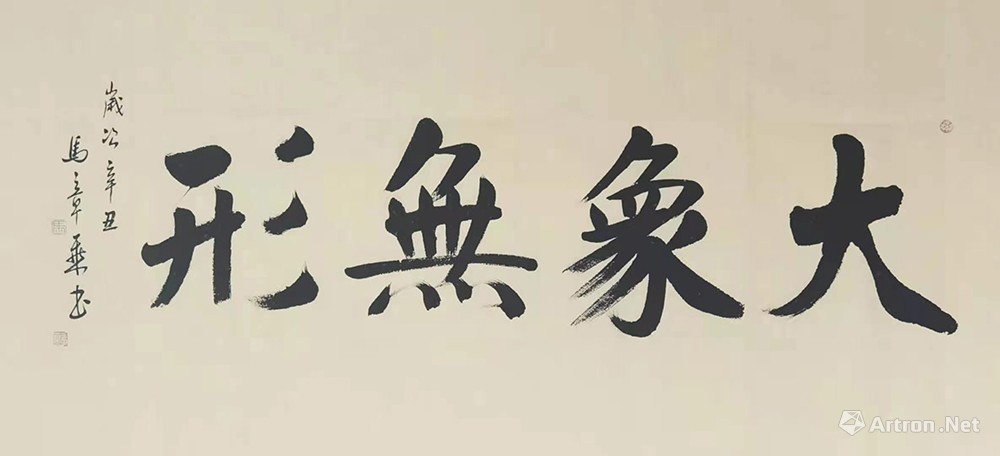 大象無形
歲次辛丑
馬章乘书
Artron.Net